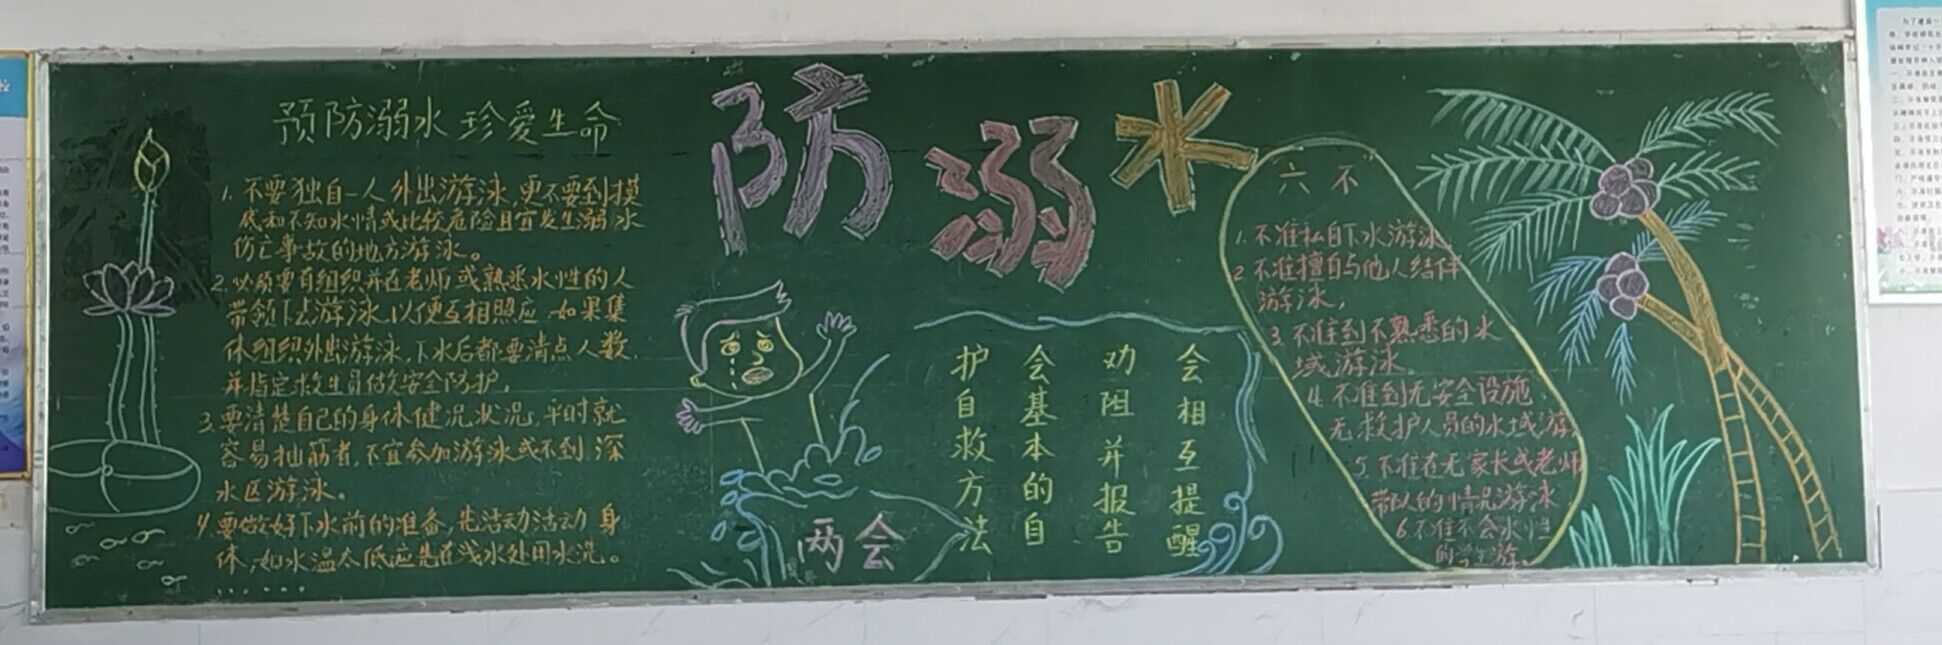 预防溺水 珍爱生命
1. 不要独自一人外出游泳,更不要到摸
底和不知水情或比较危险且宜发生溺水
伤亡事故的地方游泳。
2. 必须要有组织并在老师或熟悉水性的人
带领下去游泳,以便互相照应,如果集
体组织外出游泳,下水后都要清点人数,
并指定救生员做安全防护。
3. 要清楚自己的身体健况状况,平时就
容易抽筋者,不宜参加游泳或不到深
水区游泳。
4 要做好下水前的准备,先活动活动身
体,如水温太低应先在浅水处用水洗。
......
防溺水
两会
会相互提醒
劝阻并报告
会基本的自
护自救方法
六不
1. 不准私自下水游泳
2 不准擅自与他人结伴
游泳,
3 不准到不熟悉的水
域游泳,
4 不准到无安全设施、
无救护人员的水域游,
5 不准在无家长或老师
带队的情况游泳
6 不准不会水性
的学生游。